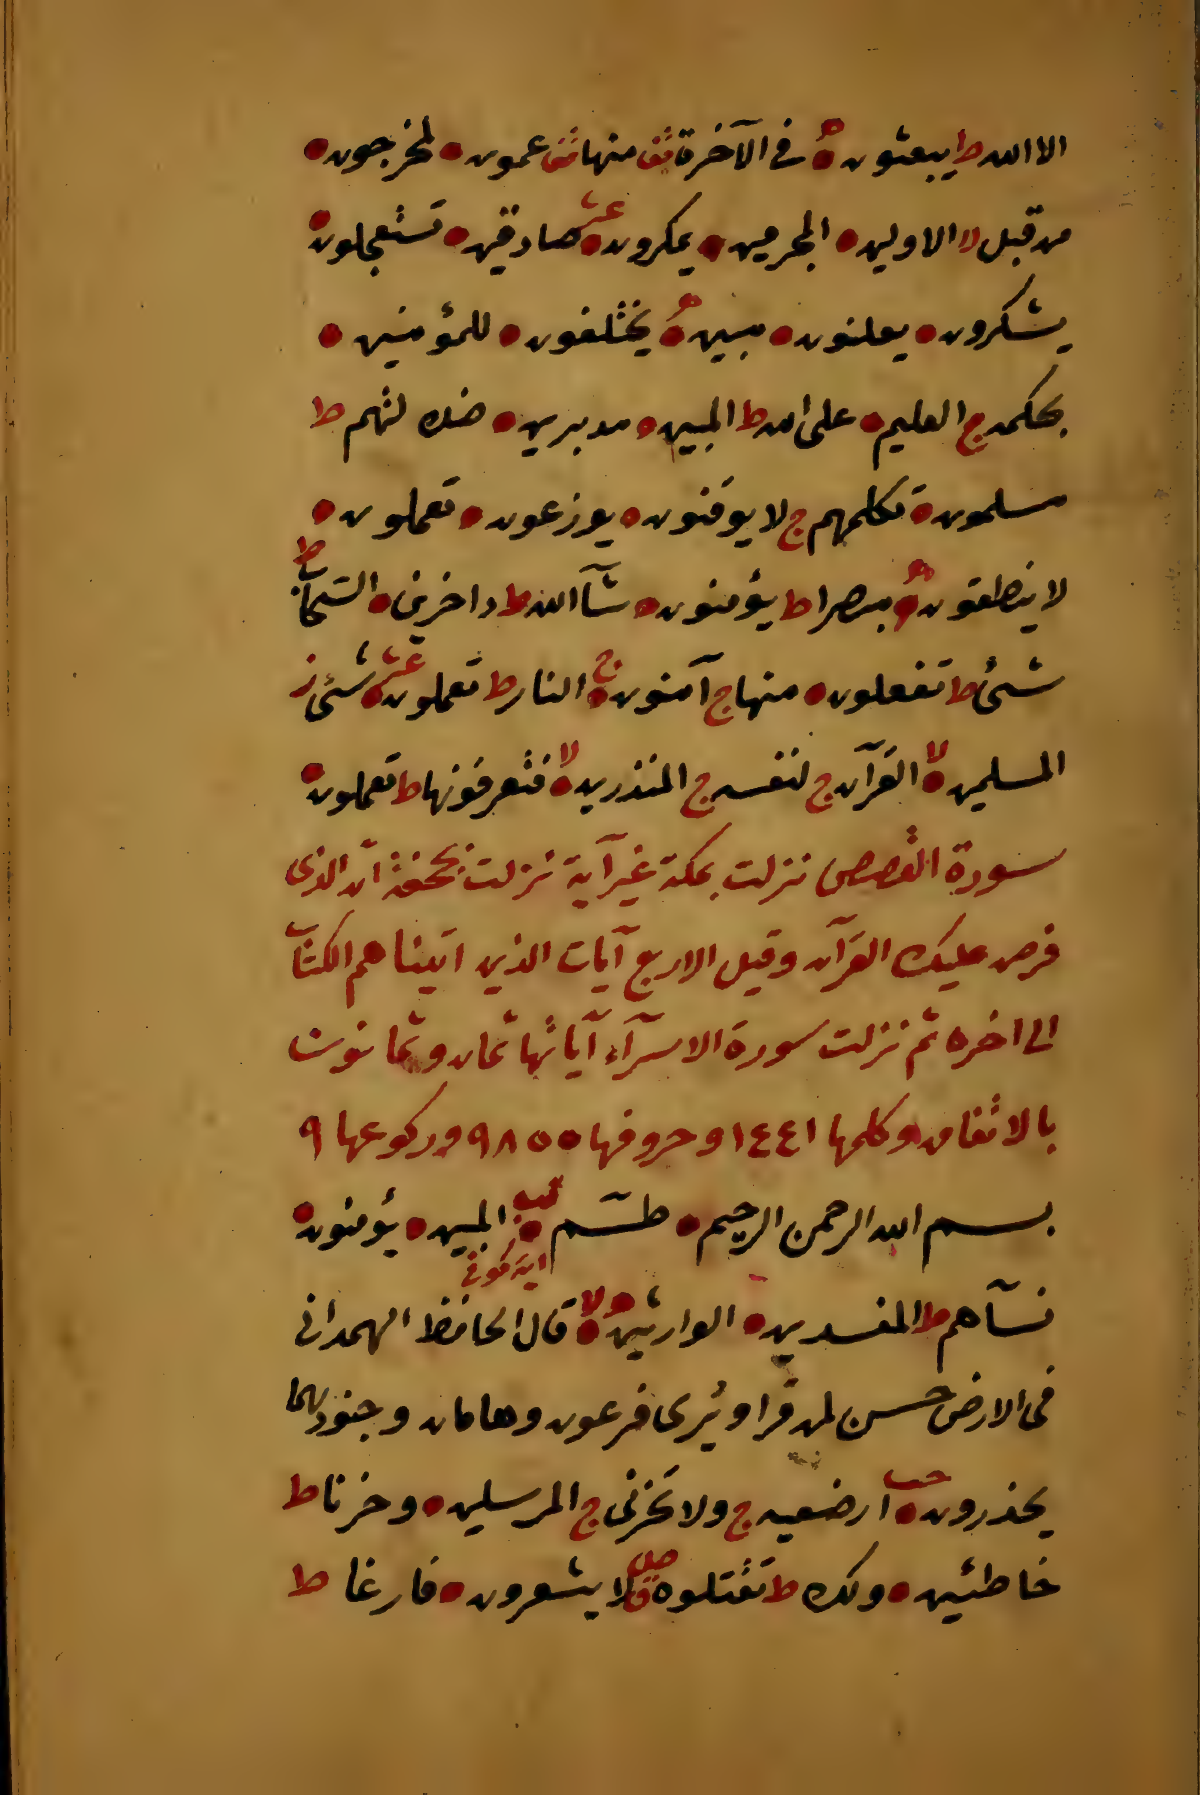 الا الله ط يبعثون ۝ ه في الآخرة قف منها قف عمون ۝ لمخرجون ۝
من قبل لا الاولين ۝ المجرمين ۝ يمكرون ۝ عشر صادقين ۝ تستعجلون ۝
يشكرون ۝ يعلنون ۝ مبين ۝ ه يختلفون ۝ للمؤمنين ۝
بحكمه ج العليم ۝ على الله ط المبين ۝ مدبرين ۝ ضلالتهم ط
مسلمون ۝ تكلمهم ج لا يوقنون ۝ يوزعون ۝ تعملون ۝
لا ينطقون ۝ ه مبصرا ط يؤمنون ۝ شآالله ط داخرين ۝ السّحاب ط
شئ ط تفعلون ۝ منها ج آمنون ۝ ج النار ط تعملون ۝ عشر شئ ز
المسلمين ۝ لا القرآن ج لنفسه ج المنذرين ۝ لا فتعرفونها ط تعملون ۝
سورة القصص نزلت بمكة غير آية نزلت بجحفة انّ الذى
فرض عليك القرآن وقيل الاربع آيات الذين اتيناهم الكتاب
الى اخره ثم نزلت سورة الاسرآء آياتها ثمان وثمانون
بالاتفاق وكلمها ١٤٤١ وحروفها ٩٨٥٥ وركوعها ٩
بسم الله الرحمن الرحيم ۝ طسّم ۝ تب اية كوفى المبين ۝ يؤمنون ۝
نسآهم ط المفسدين ۝ الوارثين ۝ ه لا قال الحافظ الهمدانى
فى الارض حسن لمن قرا ويُرى فرعون وهامان وجنودهما
يحذرون ۝ حب ارضعيه ج ولا تحزنى ج المرسلين ۝ وحزنا ط
خاطئين ۝ ولك ط تقتلوه لا يشعرون ۝ فارغا ط